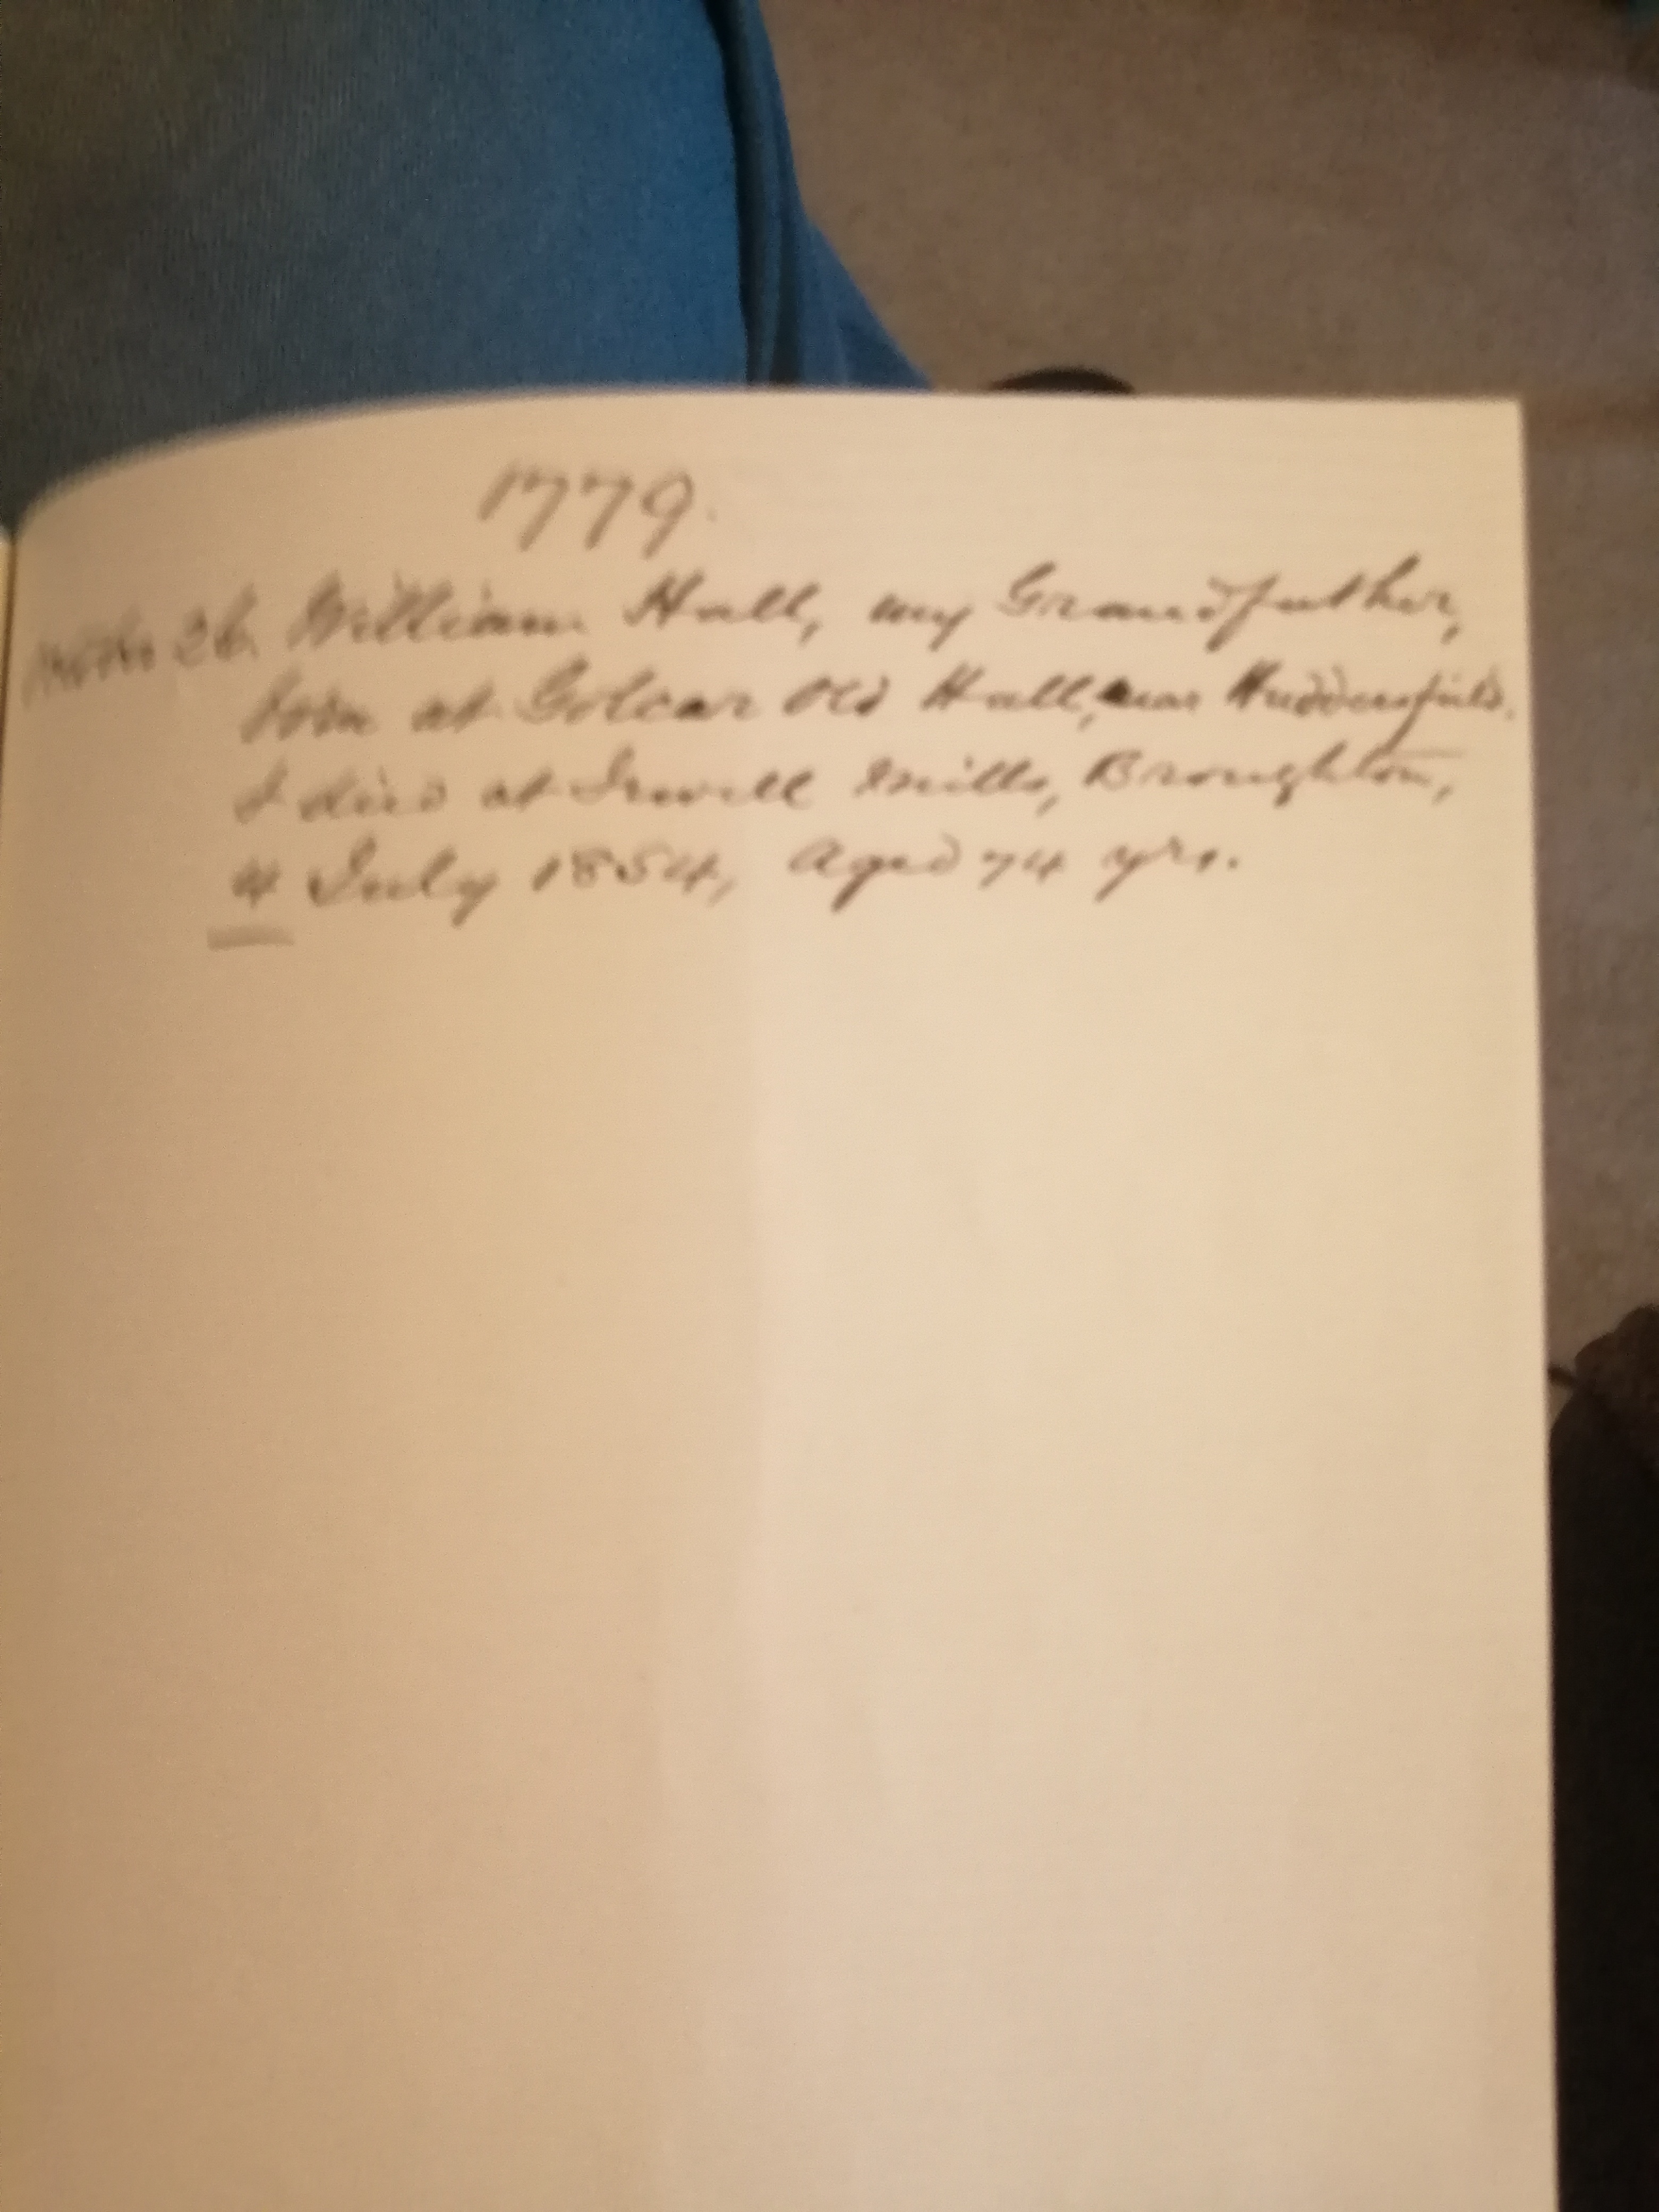 1779.
26. William Hall, my Grandfather,
born at Golcar Old Hall, near Huddersfield.
& died at Irwell Mills, Broughton,
4 July 1854, Aged 74 yrs.